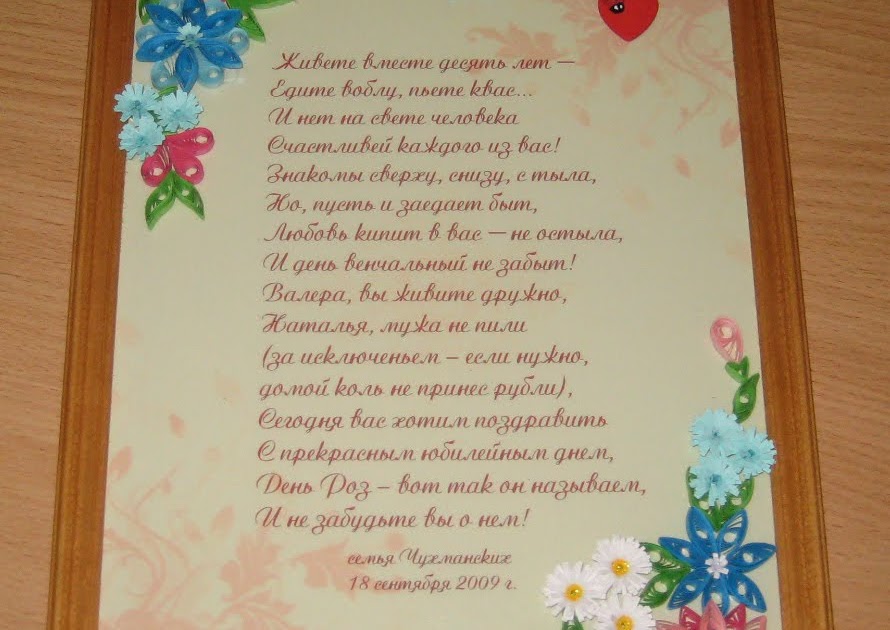 Живете вместе десять лет —
Едите воблу, пьете квас...
И нет на свете человека
Счастливей каждого из вас!
Знакомы сверху, снизу, с тыла,
Но, пусть и заедает быт,
Любовь кипит в вас — не остыла,
И день венчальный не забыт!
Валера, вы живите дружно,
Наталья, мужа не пили
(за исключеньем – если нужно,
домой коль не принес рубли),
Сегодня вас хотим поздравить
С прекрасным юбилейным днем,
День Роз – вот так он называем,
И не забудьте вы о нем!
семья Чухманских
18 сентября 2009 г.